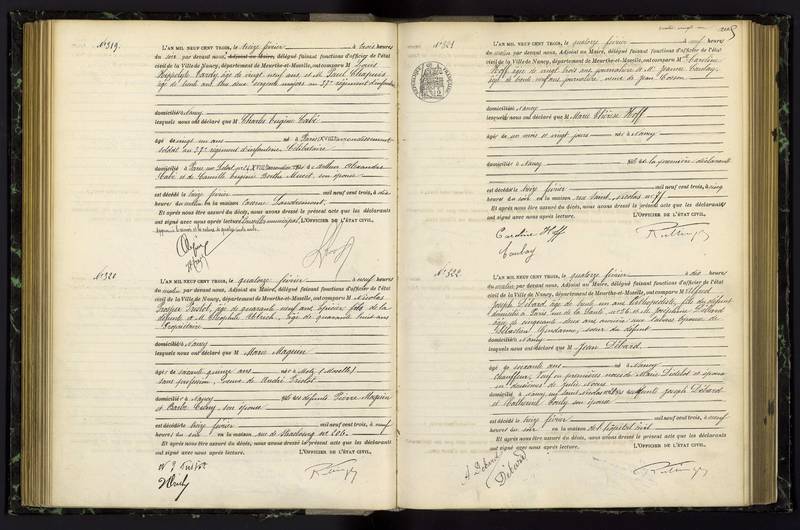 N° 319.
L'AN MIL NEUF CENT TROIS, le treize février à trois heures
du soir par devant nous, Adjoint au Maire, délégué faisant fonctions d'officier de l'état
civil de la Ville de Nancy, département de Meurthe-et-Moselle, ont comparu M Louis
Hippolyte âgé de vingt neuf ans et M. Paul Chapuis
âgé de trente ans tous deux sergents majors au 37e régiment d'infanterie
domiciliés à Nancy
lesquels nous ont déclaré que M Charles Eugène Cabé
âgé de vingt un ans né à Paris XVIII arrondissement
soldat au 37e régiment d'infanterie, Célibataire
domicilié à Paris, fils de Arthur Alexandre
Cabé et de Camille Eugénie Berthe son épouse
est décédé le treize février mil neuf cent trois, à dix
heures du matin en la maison caserne Landremont
Et après nous être assuré du décès, nous avons dressé le présent acte que les déclarants
ont signé avec nous après lecture. L'OFFICIER DE L'ÉTAT CIVIL,
N° 320
L'AN MIL NEUF CENT TROIS, le quatorze février à neuf heures
du matin par devant nous, Adjoint au Maire, délégué faisant fonctions d'officier de l'état
civil de la Ville de Nancy, département de Meurthe-et-Moselle, ont comparu M Nicolas
Prosper Pristot, âgé de quarante neuf ans épicier fils de la
défunte et M. Théophile âgé de quarante huit ans
Propriétaire
domiciliés à Nancy
lesquels nous ont déclaré que M Marie Maguin
âgée de soixante quinze ans née à Metz (Moselle)
sans profession, Veuve de André Pristot
domiciliée à Nancy fille des défunts Pierre Maguin
et Barbe son épouse
est décédée le treize février mil neuf cent trois, à neuf
heures du soir en la maison rue de Strasbourg n° 206
Et après nous être assuré du décès, nous avons dressé le présent acte que les déclarants
ont signé avec nous après lecture. L'OFFICIER DE L'ÉTAT CIVIL,
N° 321
L'AN MIL NEUF CENT TROIS, le quatorze février à neuf heures
du matin par devant nous, Adjoint au Maire, délégué faisant fonctions d'officier de l'état
civil de la Ville de Nancy, département de Meurthe-et-Moselle, ont comparu M Caroline
Hoff âgée de vingt trois ans journalière et Me Jeanne
âgée de trente ans journalière veuve de Jean
domiciliées à Nancy
lesquels nous ont déclaré que M Marie Thérèse Hoff
âgée de un mois et vingt jours née à Nancy
domiciliée à Nancy fille de la première déclarante
est décédée le treize février mil neuf cent trois, à cinq
heures du soir en la maison rue Saint Nicolas n° 77
Et après nous être assuré du décès, nous avons dressé le présent acte que les déclarants
ont signé avec nous après lecture. L'OFFICIER DE L'ÉTAT CIVIL,
Caroline Hoff
N° 322
L'AN MIL NEUF CENT TROIS, le quatorze février à dix heures
du matin par devant nous, Adjoint au Maire, délégué faisant fonctions d'officier de l'état
civil de la Ville de Nancy, département de Meurthe-et-Moselle, ont comparu M Alfred
Joseph Débard âgé de trente un ans fils du défunt
domicilié à Paris, rue de la Santé n° 36 et M. Joséphine Débard
âgée de cinquante deux ans épouse de
Sébastien sœur du défunt
domiciliée à Nancy
lesquels nous ont déclaré que M Jean Débard
âgé de soixante ans né à Nancy
chauffeur, veuf en premières noces de Marie Didelot et époux
en deuxièmes de Julie
domicilié à Nancy fils des défunts Joseph Débard
et Catherine son épouse
est décédé le treize février mil neuf cent trois, à neuf
heures du soir en la maison de l'hôpital civil
Et après nous être assuré du décès, nous avons dressé le présent acte que les déclarants
ont signé avec nous après lecture. L'OFFICIER DE L'ÉTAT CIVIL,
A. Débard
Débard